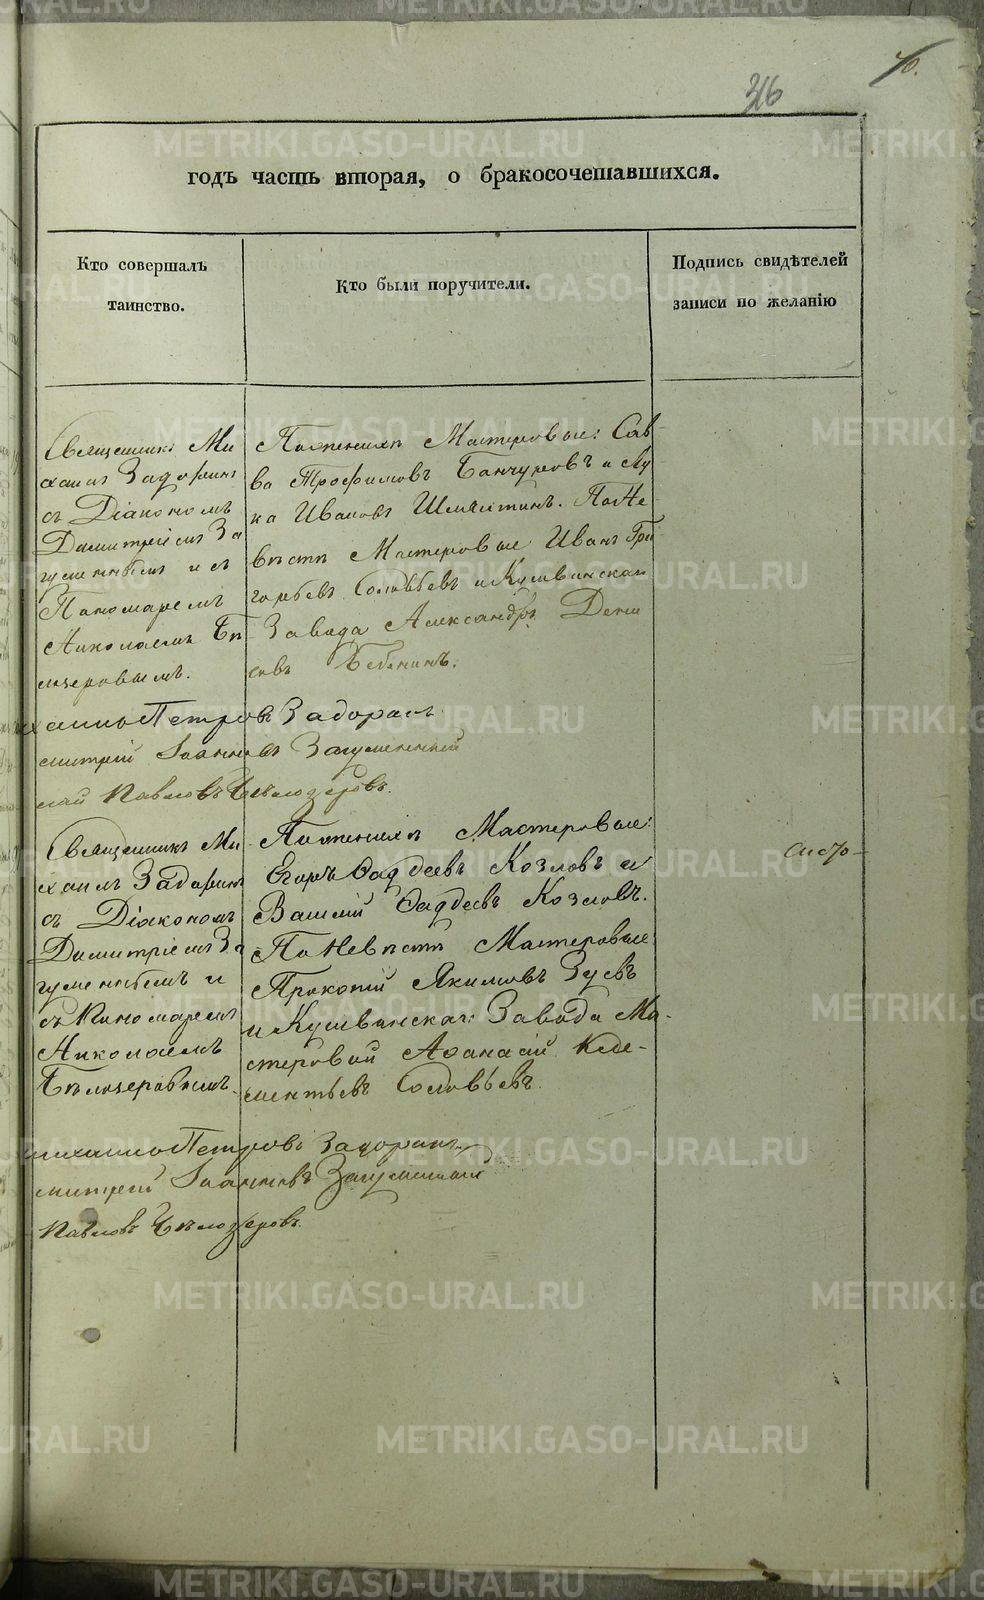 316
70.
годъ часть вторая, о бракосочетавшихся.
Кто совершалъ
таинство.
Кто были поручители.
Подпись свидѣтелей
записи по желанію
Священникъ Ми
хаилъ Задоринъ
съ Діакономъ
Димитріемъ За
гуменнымъ и съ
Пономаремъ
Николаемъ Бѣ
лозеровымъ.
По женихѣ Мастеровые: Сав
ва Трофимовъ Банчуровъ и Лу
ка Ивановъ По Не
вѣстѣ Мастеровые Иванъ Гри
горьевъ Соловьевъ и Кушвинскаго
Завода Александръ Дени
совъ Бабинъ.
Петровъ Задоринъ
Іоанновъ Загуменный
Павловъ Бѣлозеровъ.
Священникъ Ми
хаилъ Задоринъ
съ Діакономъ
Димитріемъ За
гуменнымъ и
съ Пономаремъ
Николаемъ
Бѣлозеровымъ.
По женихѣ Мастеровые:
Егоръ Фаддеевъ Козловъ и
Василій Фаддеевъ Козловъ.
По Невѣстѣ Мастеровые
Прокопій Якимовъ Зуевъ
и Кушвинскаго Завода Ма-
стеровой Афанасій Кле-
ментьевъ Соловьевъ.
Петровъ Задоринъ
митрей Іоанновъ Загуменный
Павловъ Бѣлозеровъ.
METRIKI.GASO-URAL.RU